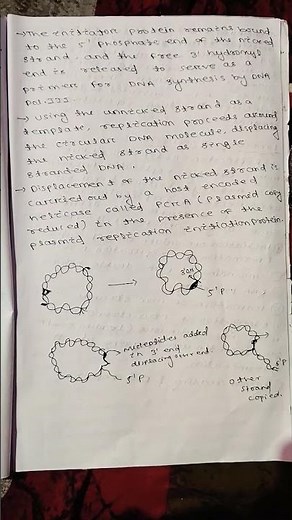 → The initiator protein remains bound
to the 5' phosphate end of the nicked
strand, and the free 3' hydroxyl
end is released to serve as a
primer for DNA synthesis by DNA
Pol.III.
→ Using the unnicked strand as a
template, replication proceeds around
the circular DNA molecule, displacing
the nicked strand as single
stranded DNA.
→ Displacement of the nicked strand is
carried out by a host encoded
helicase called PcrA (plasmid copy
reduced) in the presence of the
plasmid replication initiation protein.
3'OH
5'P
nucleotides added
in 3' end
displacing strand.
5'P
5'P
other
strand
copied.